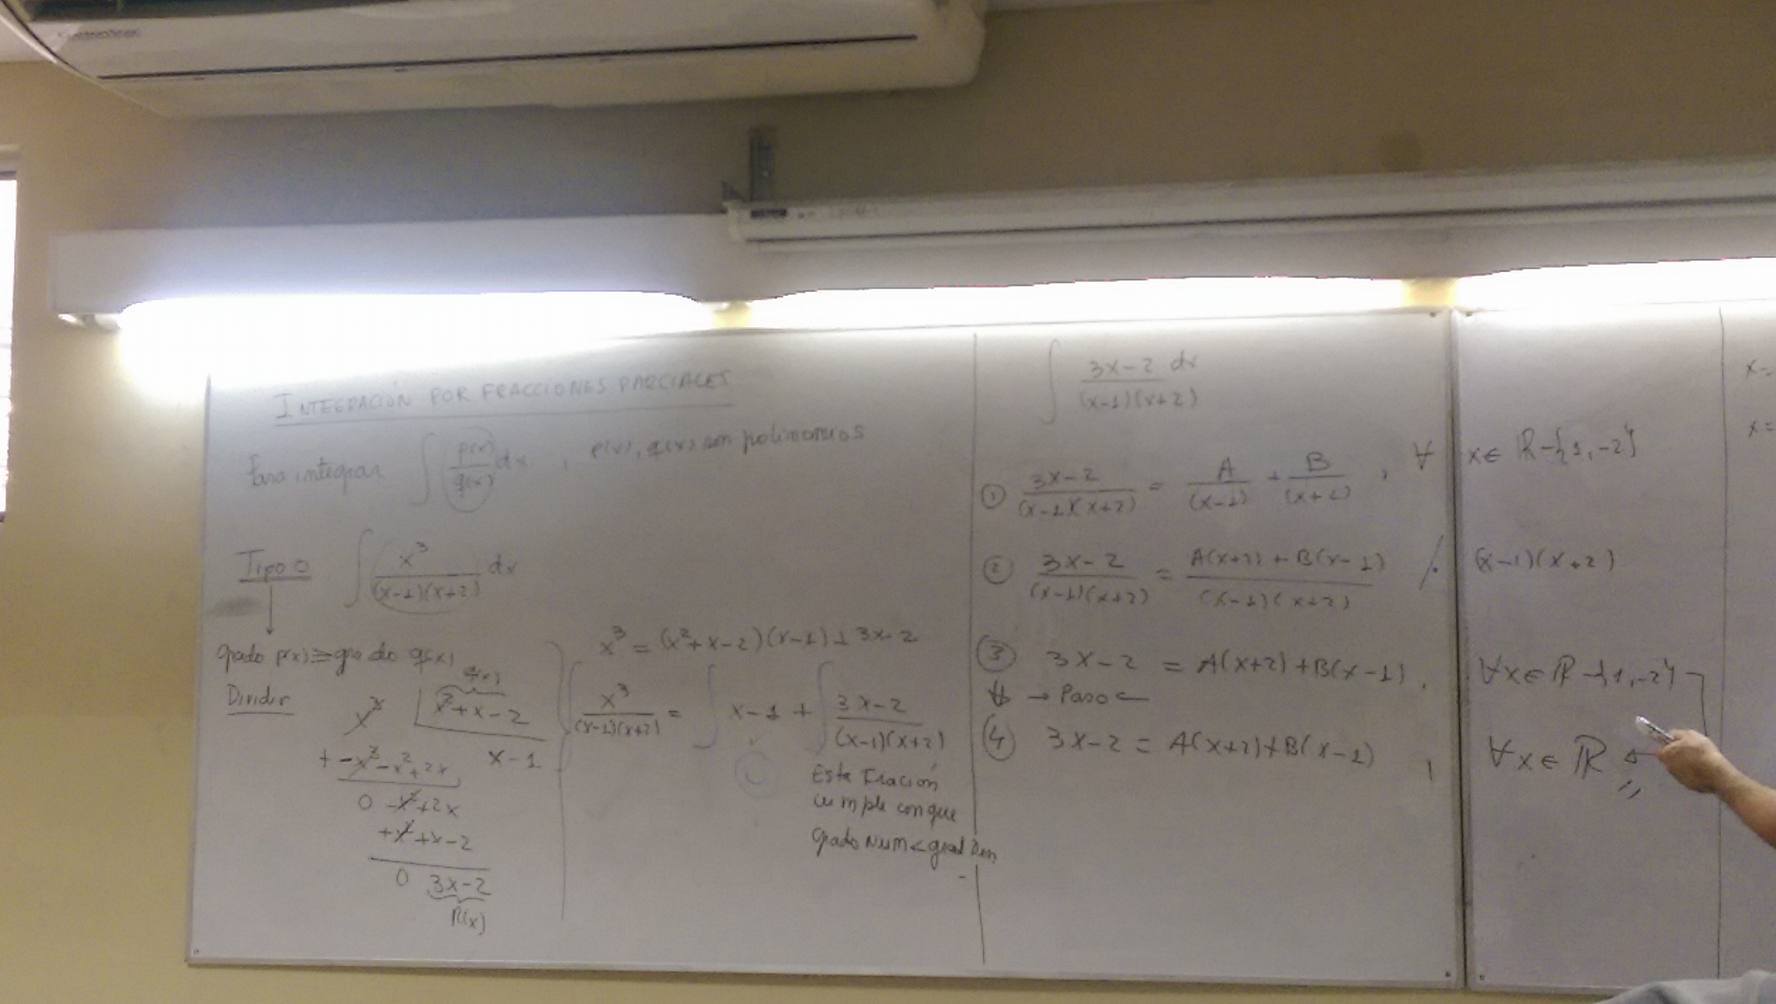 INTEGRACIÓN POR FRACCIONES PARCIALES
Para integrar ∫ p(x)/q(x) dx , p(x), q(x) son polinomios
Tipo 0 ∫ x³/((x-1)(x+2)) dx
grado p(x) ≥ grado q(x)
Dividir
q(x)
x³ x²+x-2
+ -x³-x²+2x x-1
0 -x²+2x
+x²+x-2
0 3x-2
R(x)
x³ = (x²+x-2)(x-1)+3x-2
∫ x³/((x-1)(x+2)) = ∫ x-1 + ∫ (3x-2)/((x-1)(x+2))
Esta Fración
cumple con que
grado Num < grad Den
∫ (3x-2 dx)/((x-1)(x+2))
① (3x-2)/((x-1)(x+2)) = A/(x-1) + B/(x+2) , ∀ x∈ ℝ-{1,-2}
② (3x-2)/((x-1)(x+2)) = (A(x+2)+B(x-1))/((x-1)(x+2)) /· (x-1)(x+2)
③ 3x-2 = A(x+2)+B(x-1), ∀x∈ ℝ-{1,-2}
→ Paso ←
④ 3x-2 = A(x+2)+B(x-1) , ∀x∈ ℝ
x=
x=